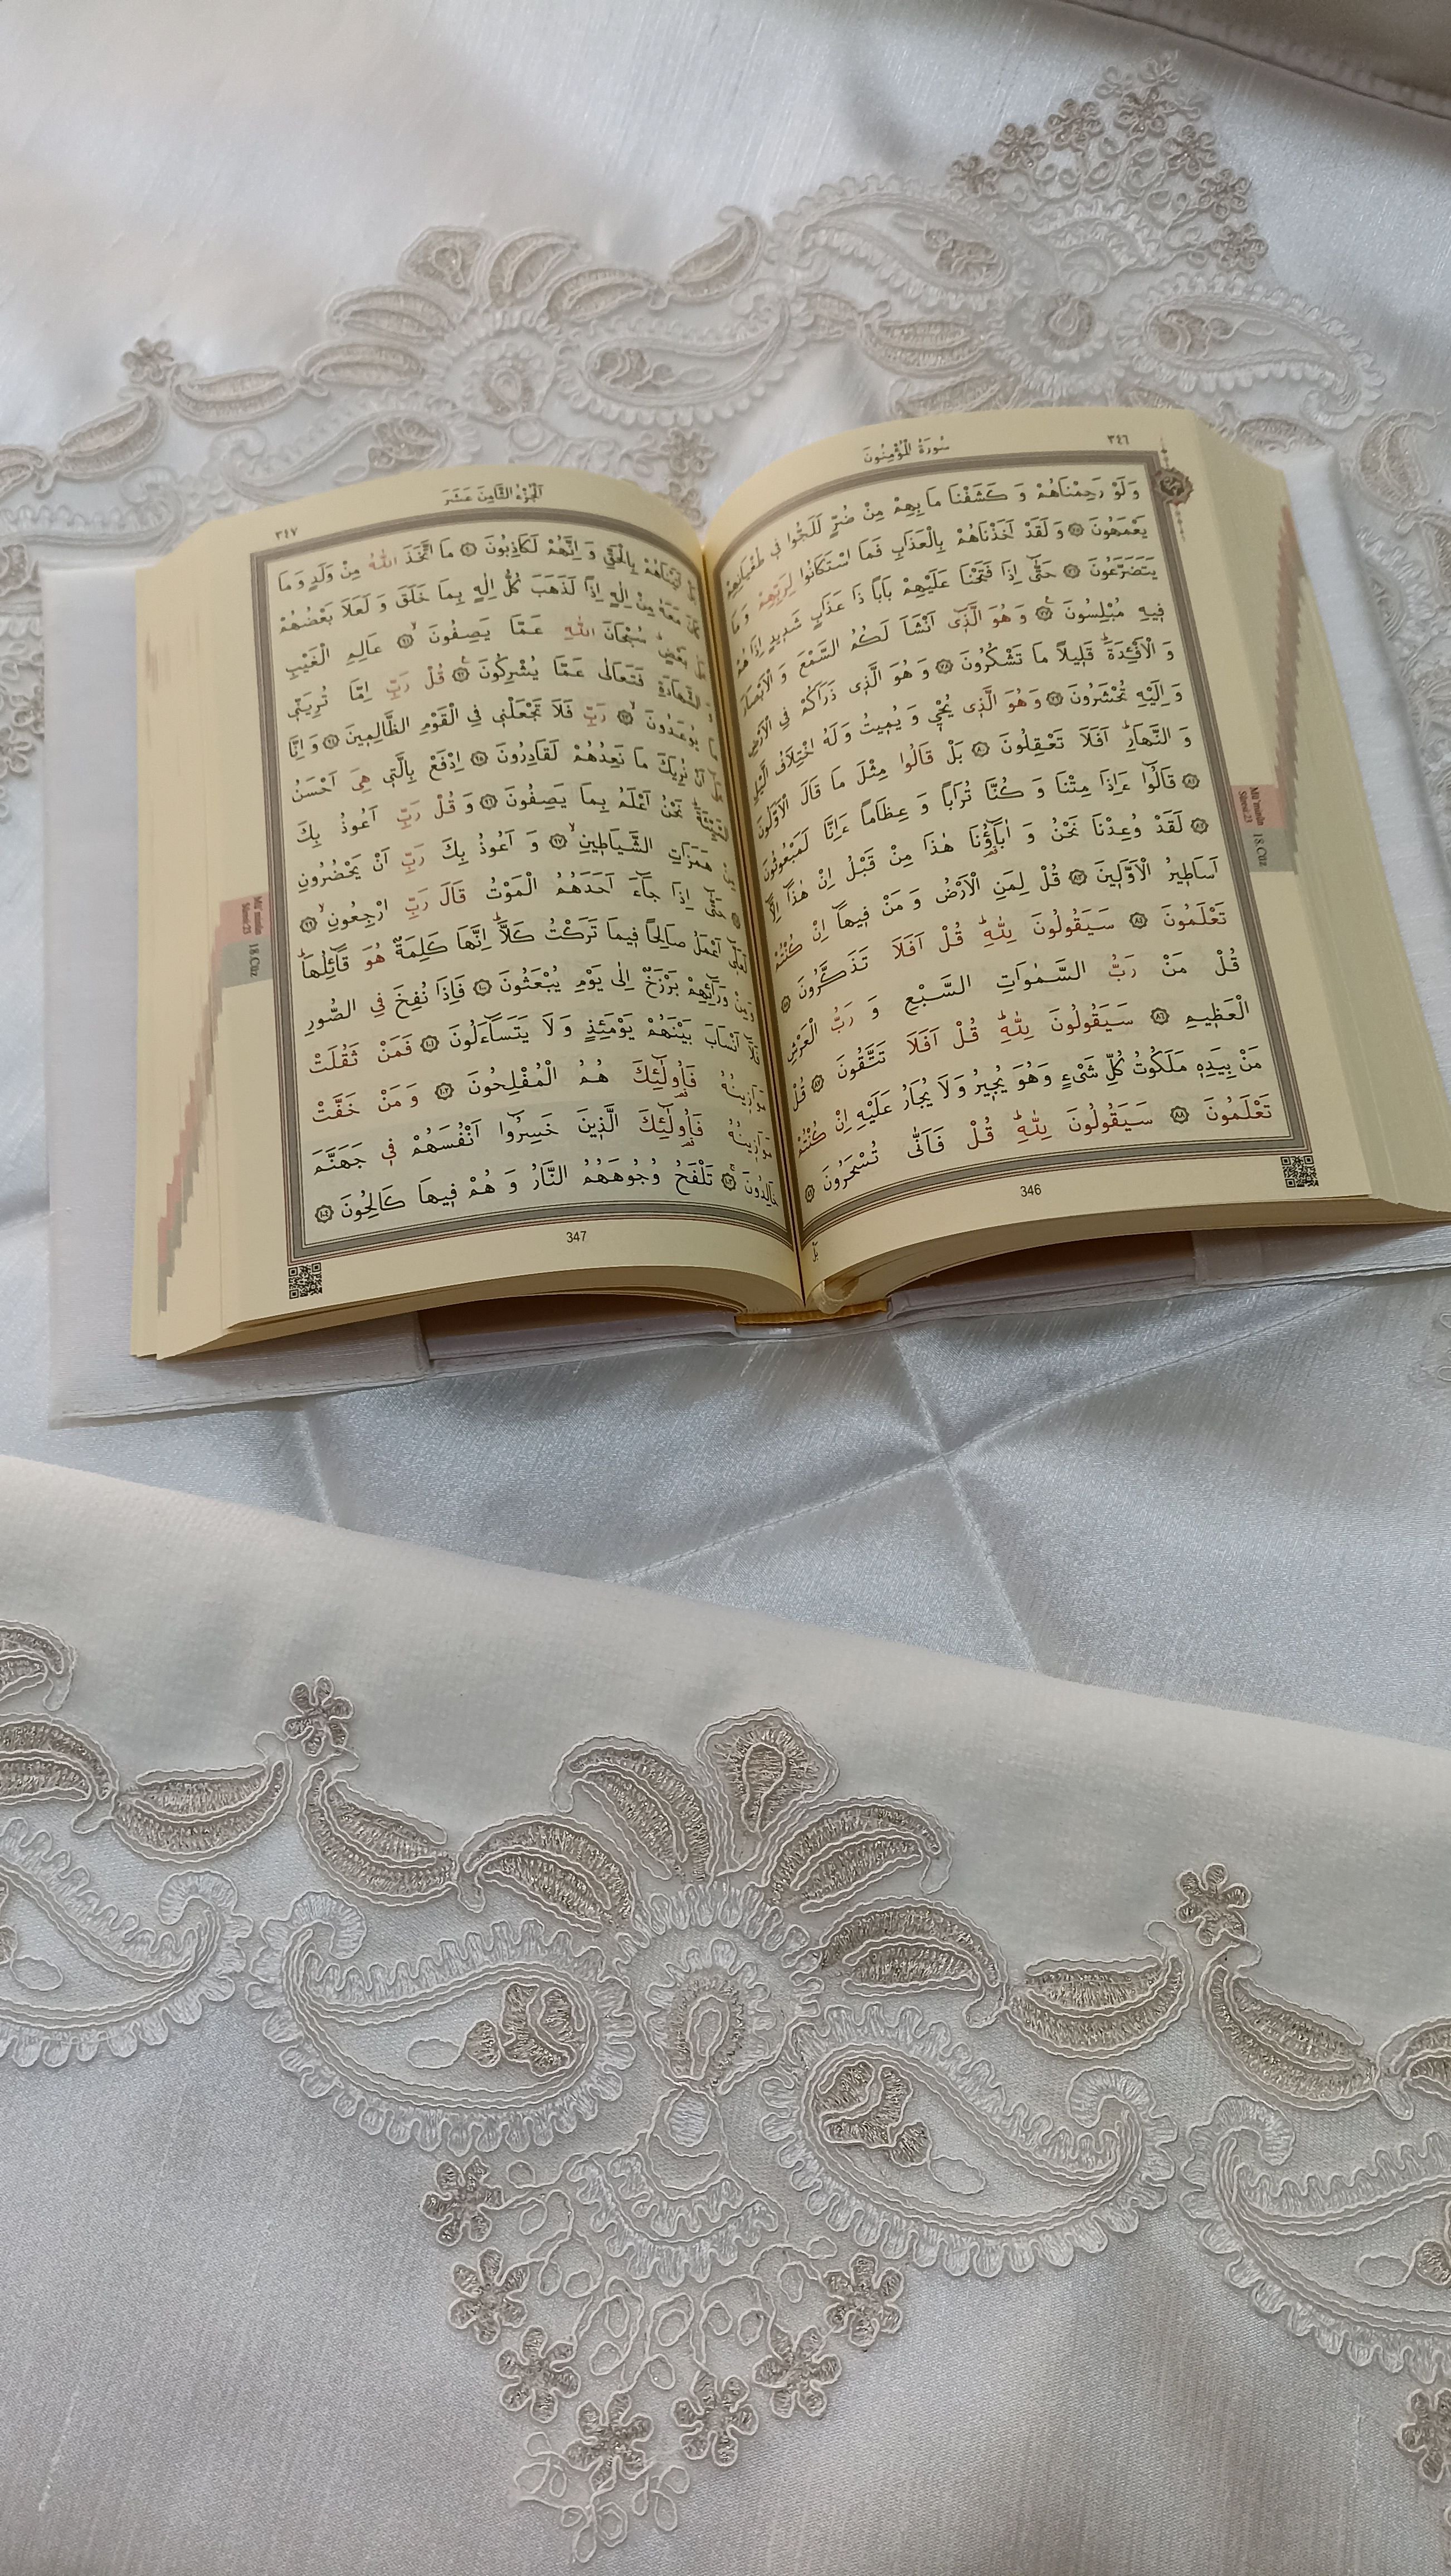 ٣٤٦
سُورَةُ الْمُؤْمِنُونَ
وَلَوْ رَحِمْنَاهُمْ وَ كَشَفْنَا مَا بِهِمْ مِنْ ضُرٍّ لَلَجُّوا فِي طُغْيَانِهِمْ
يَعْمَهُونَ ٧٥ وَ لَقَدْ اَخَذْنَاهُمْ بِالْعَذَابِ فَمَا اسْتَكَانُوا لِرَبِّهِمْ وَ مَا
يَتَضَرَّعُونَ ٧٦ حَتّٰٓى اِذَا فَتَحْنَا عَلَيْهِمْ بَابًا ذَا عَذَابٍ شَدِيدٍ اِذَا هُمْ
فِيهِ مُبْلِسُونَ ٧٧ وَ هُوَ الَّذِٓى اَنْشَاَ لَكُمُ السَّمْعَ وَ الْاَبْصَارَ
وَ الْاَفْئِدَةَ قَلِيلًا مَا تَشْكُرُونَ ٧٨ وَ هُوَ الَّذِى ذَرَاَكُمْ فِي الْاَرْضِ
وَ اِلَيْهِ تُحْشَرُونَ ٧٩ وَ هُوَ الَّذِى يُحْيٖ وَ يُمِيتُ وَ لَهُ اخْتِلَافُ الَّيْلِ
وَ النَّهَارِ اَفَلَا تَعْقِلُونَ ٨٠ بَلْ قَالُوا مِثْلَ مَا قَالَ الْاَوَّلُونَ
٨١ قَالُٓوا ءَاِذَا مِتْنَا وَ كُنَّا تُرَابًا وَ عِظَامًا ءَاِنَّا لَمَبْعُوثُونَ
٨٢ لَقَدْ وُعِدْنَا نَحْنُ وَ اٰبَٓاؤُنَا هٰذَا مِنْ قَبْلُ اِنْ هٰذَٓا اِلَّٓا
اَسَاطِيرُ الْاَوَّلِينَ ٨٣ قُلْ لِمَنِ الْاَرْضُ وَ مَنْ فِيهَٓا اِنْ كُنْتُمْ
تَعْلَمُونَ ٨٤ سَيَقُولُونَ لِلّٰهِ قُلْ اَفَلَا تَذَكَّرُونَ ٨٥
قُلْ مَنْ رَبُّ السَّمٰوَاتِ السَّبْعِ وَ رَبُّ الْعَرْشِ
الْعَظِيمِ ٨٦ سَيَقُولُونَ لِلّٰهِ قُلْ اَفَلَا تَتَّقُونَ ٨٧ قُلْ
مَنْ بِيَدِهِ مَلَكُوتُ كُلِّ شَىْءٍ وَهُوَ يُجِيرُ وَ لَا يُجَارُ عَلَيْهِ اِنْ كُنْتُمْ
تَعْلَمُونَ ٨٨ سَيَقُولُونَ لِلّٰهِ قُلْ فَاَنّٰى تُسْحَرُونَ ٨٩
346
بَلْ
Mü'minûn
Sûresi 23
18.Cüz
اَلْجُزْءُ الثَّامِنَ عَشَرَ
٣٤٧
بَلْ اَتَيْنَاهُمْ بِالْحَقِّ وَ اِنَّهُمْ لَكَاذِبُونَ ٩٠ مَا اتَّخَذَ اللّٰهُ مِنْ وَلَدٍ وَ مَا
كَانَ مَعَهُ مِنْ اِلٰهٍ اِذًا لَذَهَبَ كُلُّ اِلٰهٍ بِمَا خَلَقَ وَ لَعَلَا بَعْضُهُمْ
عَلٰى بَعْضٍ سُبْحَانَ اللّٰهِ عَمَّا يَصِفُونَ ٩١ عَالِمِ الْغَيْبِ
وَ الشَّهَادَةِ فَتَعَالٰى عَمَّا يُشْرِكُونَ ٩٢ قُلْ رَبِّ اِمَّا تُرِيَنّٖى
مَا يُوعَدُونَ ٩٣ رَبِّ فَلَا تَجْعَلْنٖى فِي الْقَوْمِ الظَّالِمِينَ ٩٤ وَ اِنَّا
عَلٰٓى اَنْ نُرِيَكَ مَا نَعِدُهُمْ لَقَادِرُونَ ٩٥ اِدْفَعْ بِالَّتٖى هِىَ اَحْسَنُ
السَّيِّئَةَ نَحْنُ اَعْلَمُ بِمَا يَصِفُونَ ٩٦ وَ قُلْ رَبِّ اَعُوذُ بِكَ
مِنْ هَمَزَاتِ الشَّيَاطِينِ ٩٧ وَ اَعُوذُ بِكَ رَبِّ اَنْ يَحْضُرُونِ
٩٨ حَتّٰٓى اِذَا جَٓاءَ اَحَدَهُمُ الْمَوْتُ قَالَ رَبِّ ارْجِعُونِ ٩٩
لَعَلّٖٓى اَعْمَلُ صَالِحًا فِيمَا تَرَكْتُ كَلَّا اِنَّهَا كَلِمَةٌ هُوَ قَٓائِلُهَا
وَ مِنْ وَرَٓائِهِمْ بَرْزَخٌ اِلٰى يَوْمِ يُبْعَثُونَ ١٠٠ فَاِذَا نُفِخَ فِي الصُّورِ
فَلَٓا اَنْسَابَ بَيْنَهُمْ يَوْمَئِذٍ وَ لَا يَتَسَٓاءَلُونَ ١٠١ فَمَنْ ثَقُلَتْ
مَوَازِينُهُ فَاُولٰٓئِكَ هُمُ الْمُفْلِحُونَ ١٠٢ وَ مَنْ خَفَّتْ
مَوَازِينُهُ فَاُولٰٓئِكَ الَّذِينَ خَسِرُٓوا اَنْفُسَهُمْ فٖى جَهَنَّمَ
خَالِدُونَ ١٠٣ تَلْفَحُ وُجُوهَهُمُ النَّارُ وَ هُمْ فِيهَا كَالِحُونَ ١٠٤
347
Mü'minûn
Sûresi 23
18.Cüz